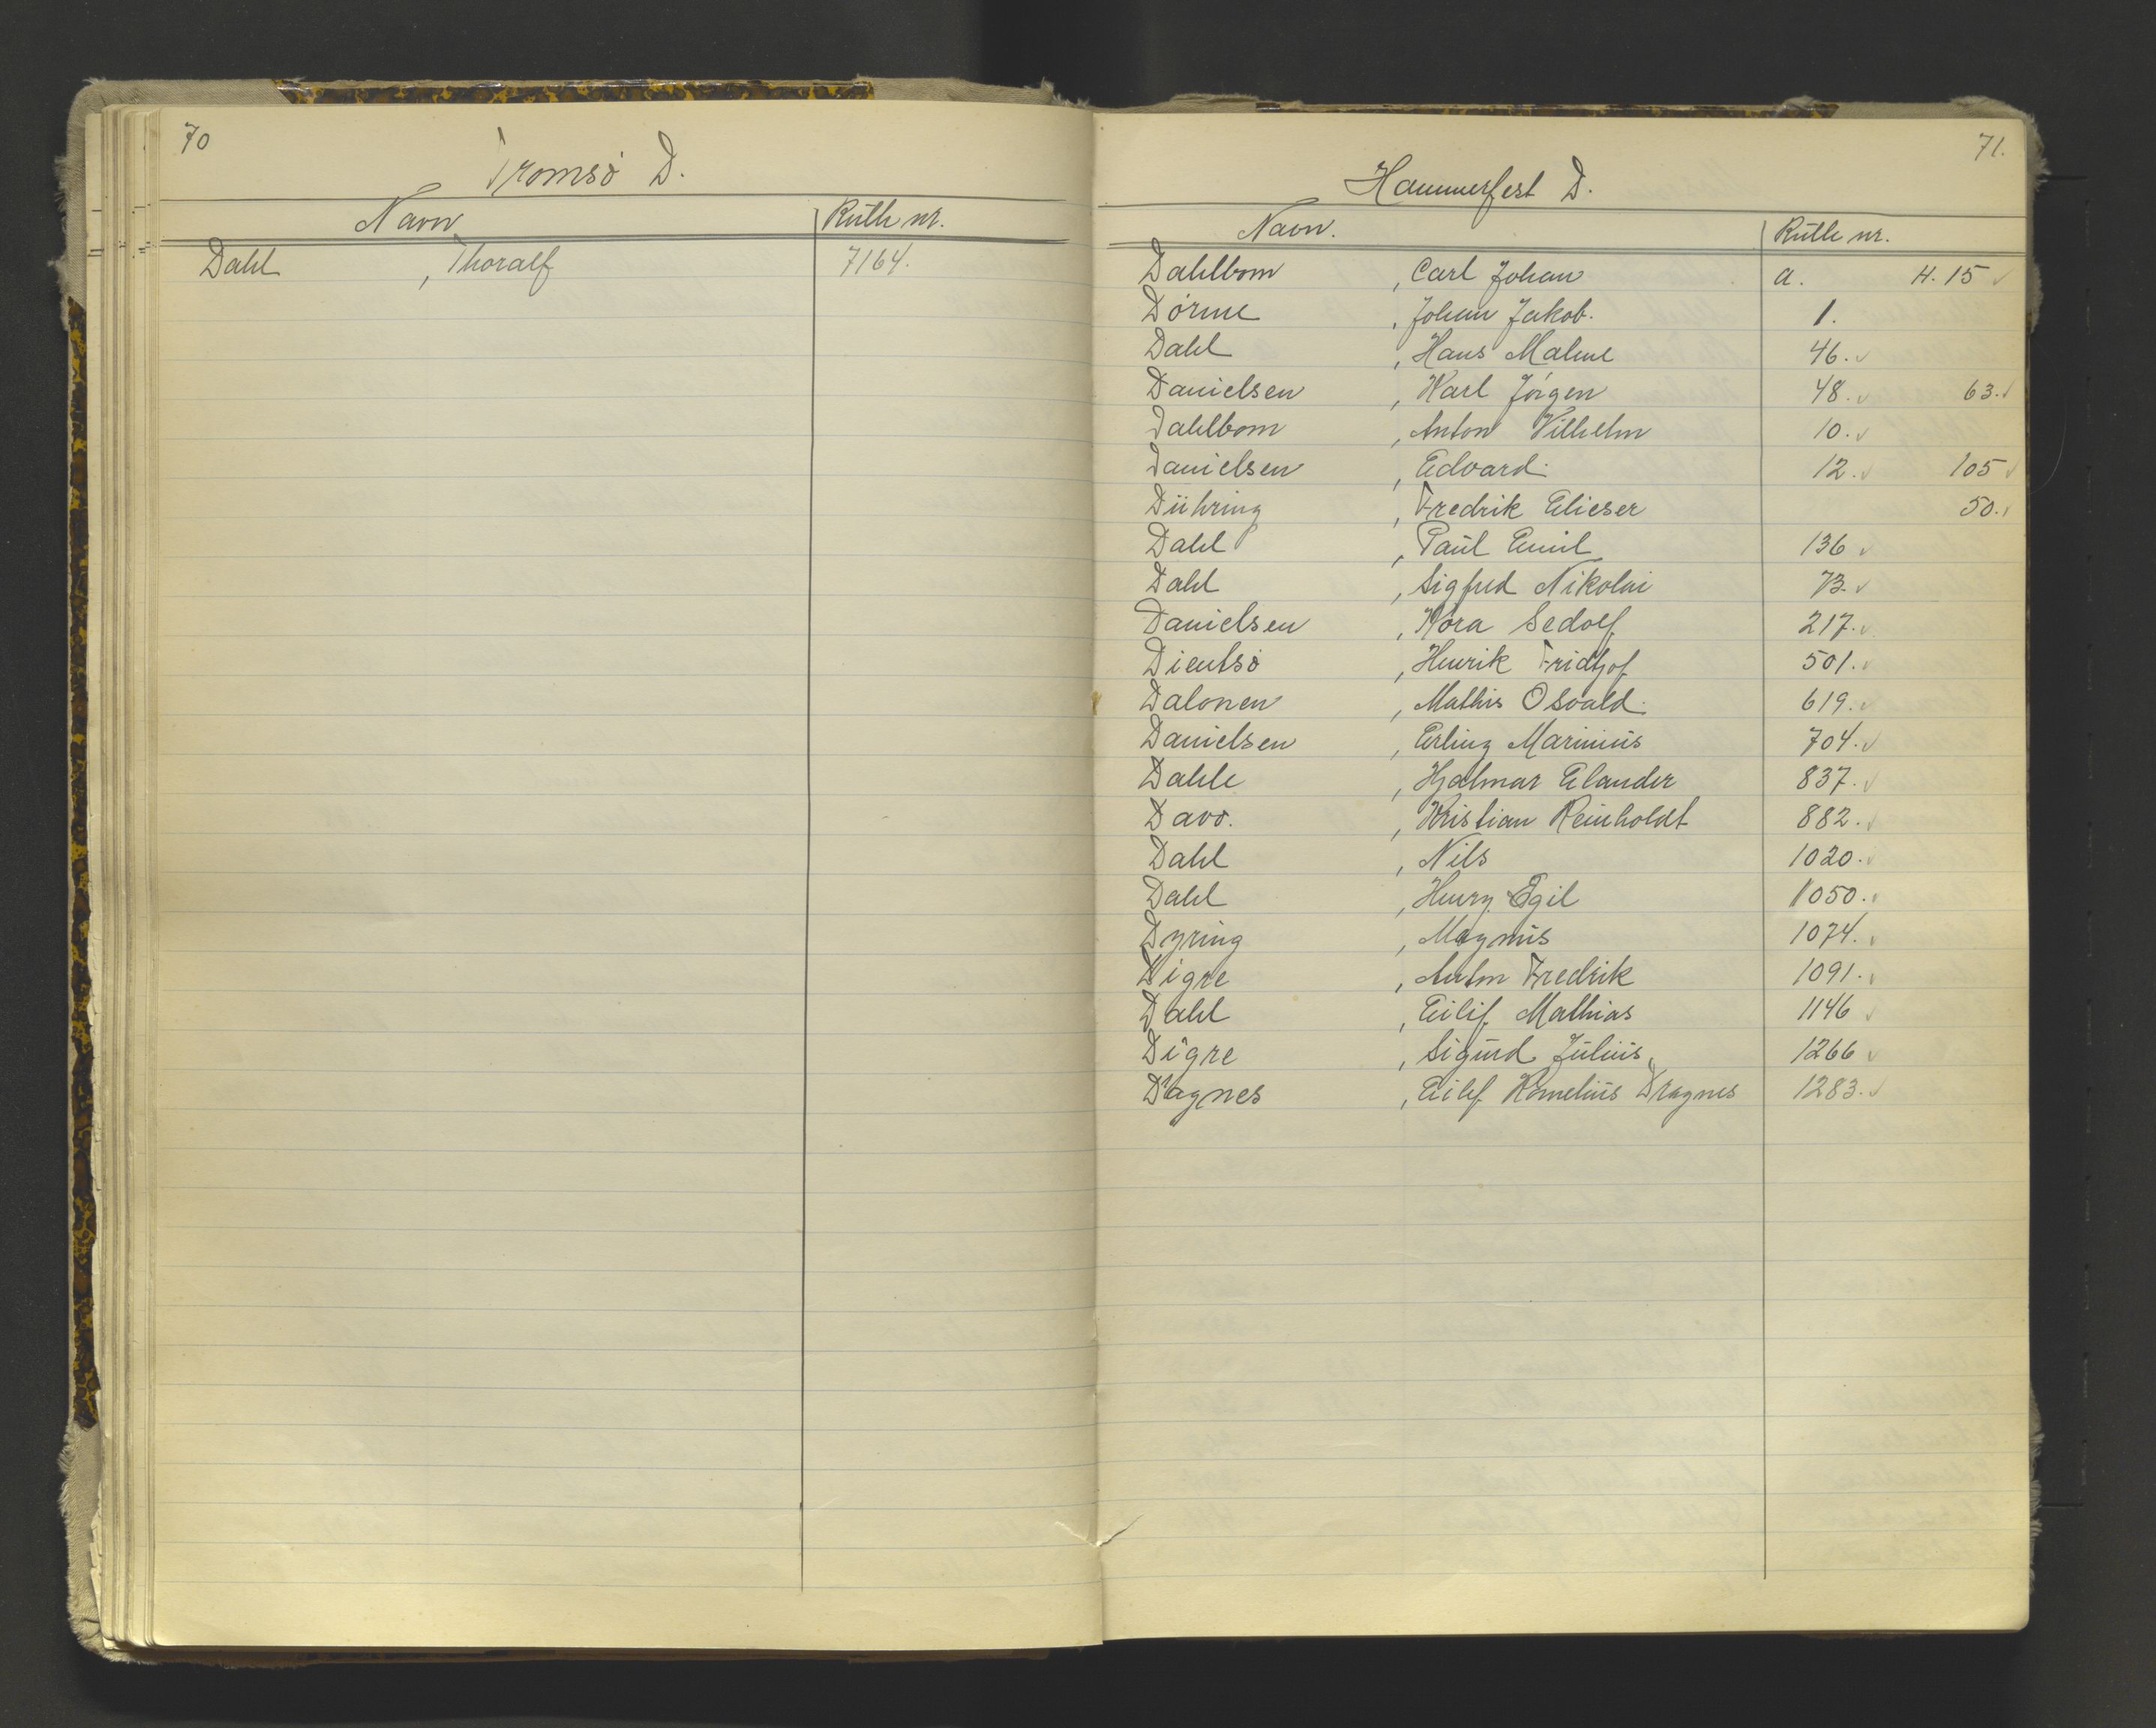 70
Tromsö D.
Navn Rulle nr.
Dahl , Thoralf 7164.
71.
Hammerfest D.
Navn. Rulle nr.
Dahlbom , Carl Johan a. H. 15
Dörme , Johan Jakob. 1.
Dahl , Hans Malme 46.
Danielsen , Karl Jörgen 48. 63.
Dahlbom , Anton Vilhelm 10.
Danielsen , Edvard. 12. 105
Dühring , Fredrik Elieser 50.
Dahl , Paul Emil 136
Dahl , Sigfred Nikolai 73.
Danielsen , Kåra Sedolf 217.
Dientsö , Henrik Fridtjof 501.
Dalonen , Mathis Osvald. 619.
Danielsen , Erling Marinius 704.
Dahle , Hjalmar Elander 837.
Davo. , Kristian Reinholdt 882.
Dahl , Nils 1020.
Dahl , Henry Egil 1050.
Dyring , Magnus 1074.
Digre , Anton Fredrik 1091.
Dahl , Eilif Mathias 1146
Digre , Sigurd Julius 1266
Dragnes , Eilef Kornelius Dragnes 1283.